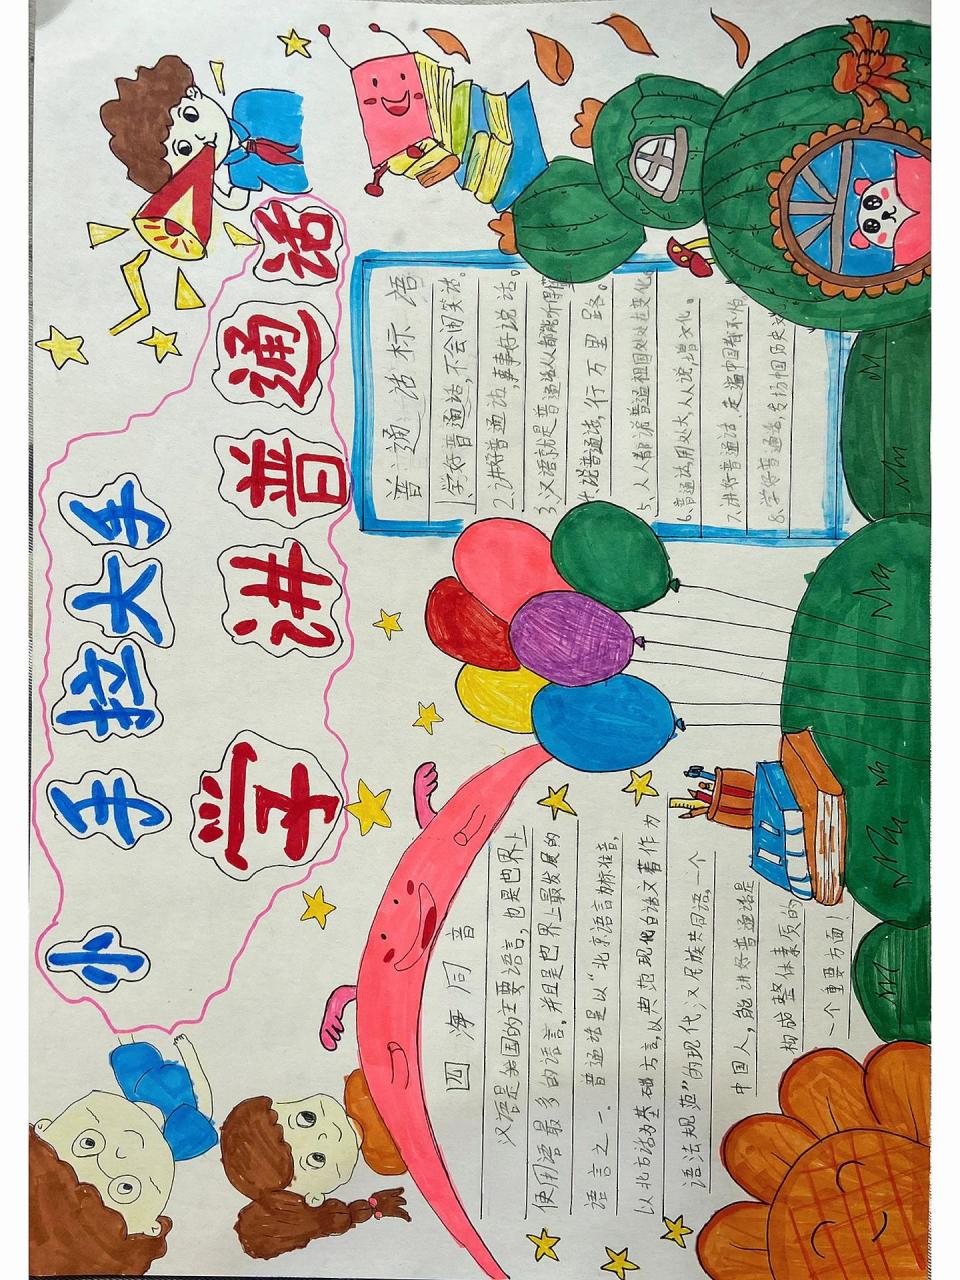 小手拉大手
学讲普通话
四海同音
汉语是我国的主要语言,也是世界上
使用语最多的语言,并且是世界上最发展的
语言之一.普通话是以“北京语言为标准音,
以北方话为基础方言,以典范现化白话文著作为
语法规范”的现代,汉民族共同语,一个
中国人,能讲好普通话是
构成整体素质的
一个重要方面!
普通话标语
1.学好普通话,不会闹笑话。
2.讲好普通话,事事好说话。
3.汉语就是普通话人人都能听得
讲说普通话,行万里路。
5、人人都说普通祖国处处在变化
6.普通话用处大,人人说,增文化。
7.讲好普通话.走遍中国都不怕。
8.学好普通话,发扬中国历史文